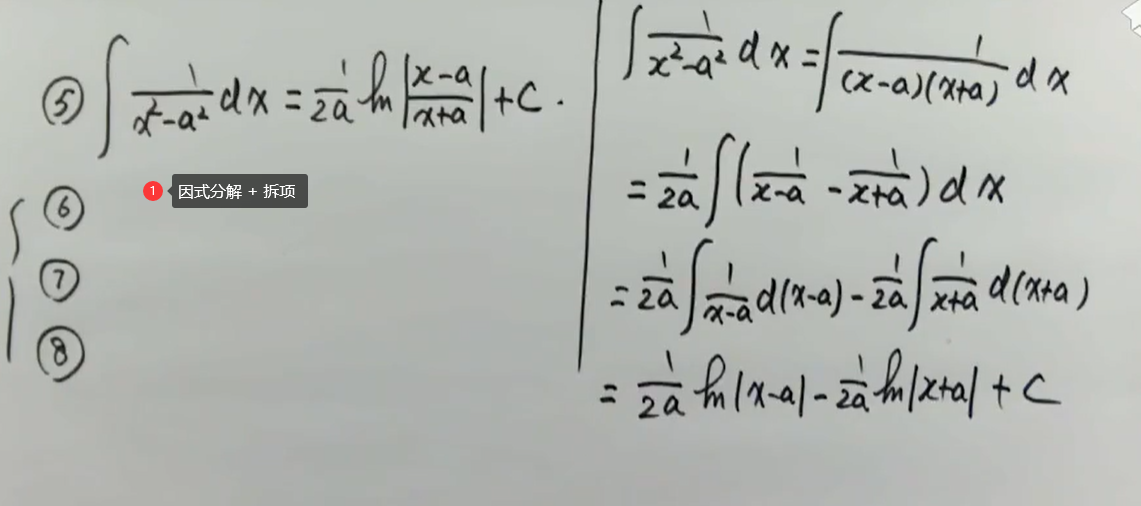 ⑤ ∫ 1/(x²-a²) dx = 1/(2a) ln |(x-a)/(x+a)| + C .
① 因式分解 + 拆项
⑥
⑦
⑧
∫ 1/(x²-a²) dx = ∫ 1/((x-a)(x+a)) dx
= 1/(2a) ∫ (1/(x-a) - 1/(x+a)) dx
= 1/(2a) ∫ 1/(x-a) d(x-a) - 1/(2a) ∫ 1/(x+a) d(x+a)
= 1/(2a) ln|x-a| - 1/(2a) ln|x+a| + C